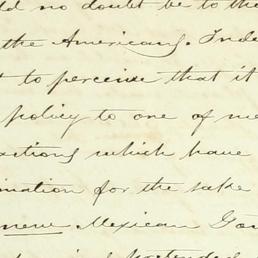 ld no doubt be to the
the Americans. Inde
t to perceive that it
policy to one of me
actions which have
ination for the sake
new Mexican Gov
pretended